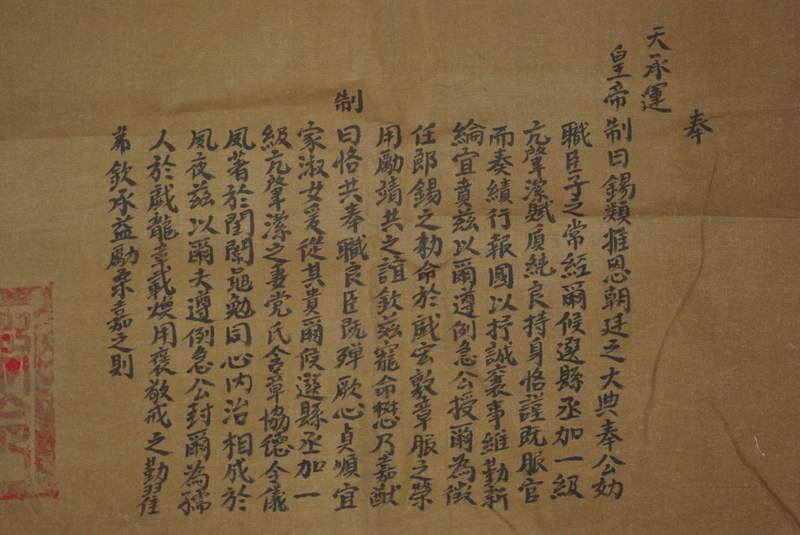 奉
天承運
皇帝制曰錫類推恩朝廷之大典奉公効
職臣子之常經爾候選縣丞加一級
亢肇潔賦質純良持身恪謹既服官
而奏績行報國以抒誠襄事維勤新
綸宜賁茲以爾遵例急公授爾為徵
仕郎錫之勅命於戲宏敷章服之榮
用勵靖共之誼欽茲寵命懋乃嘉猷
制
曰恪共奉職良臣既殫厥心貞順宜
家淑女爰從其貴爾候選縣丞加一
級亢肇潔之妻党氏含章協德令儀
夙著於閨閫黽勉同心內治相成於
夙夜茲以爾夫遵例急公封爾為孺
人於戲龍章載煥用褒敬戒之勤翟
茀欽承益勵柔嘉之則